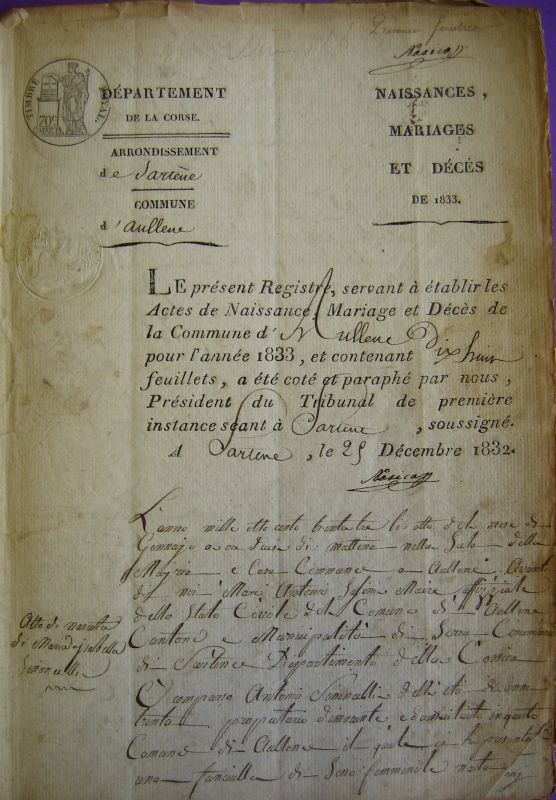 Premier feuillet
Nasica
TIMBRE ROYAL
70c
DÉPARTEMENT
DE LA CORSE.
ARRONDISSEMENT
de Sartène
COMMUNE
d'Aullene
NAISSANCES,
MARIAGES
ET DÉCÈS
DE 1833.
LE présent Registre, servant à établir les
Actes de Naissance, Mariage et Décès de
la Commune d'Aullene
pour l'année 1833, et contenant Dix huit
feuillets, a été coté et paraphé par nous,
Président du Tribunal de première
instance séant à Sartene, soussigné.
A Sartene, le 25 Décembre 1832.
Nasica
L'anno mille otto cento trenta tre li otto del mese di
Gennajo a ore dieci di mattena nella Sala della
Mairia e Casa Commune a Aullene Avanti
di noi Marc Antonio Maire, uffiziale
dello Stato Civile della Comune di Aullene
Cantone e Municipalità di Serra Circondario
di Sartene Dipartimento della Corsica
È comparso Antonio Simonelli dell'età di anni
trenta proprietario dimorante e domiciliato in questa
Comune di Aullene il quale ci ha presentato
una fanciulla di sesso femminile nata
Atto di nascita
di Maria Isabella
Simoncelli